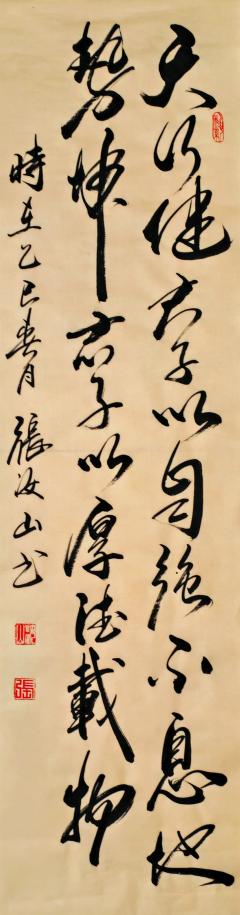 天行健君子以自強不息地
勢坤君子以厚德載物
時在乙巳春月張汝山书
張